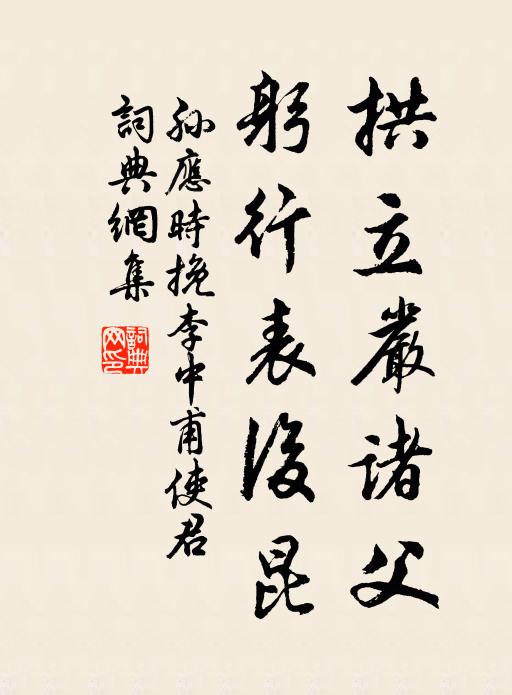 拱立嚴諸父
躬行表後昆
孫應時挽李中甫使君
詞典網集
詞典網印